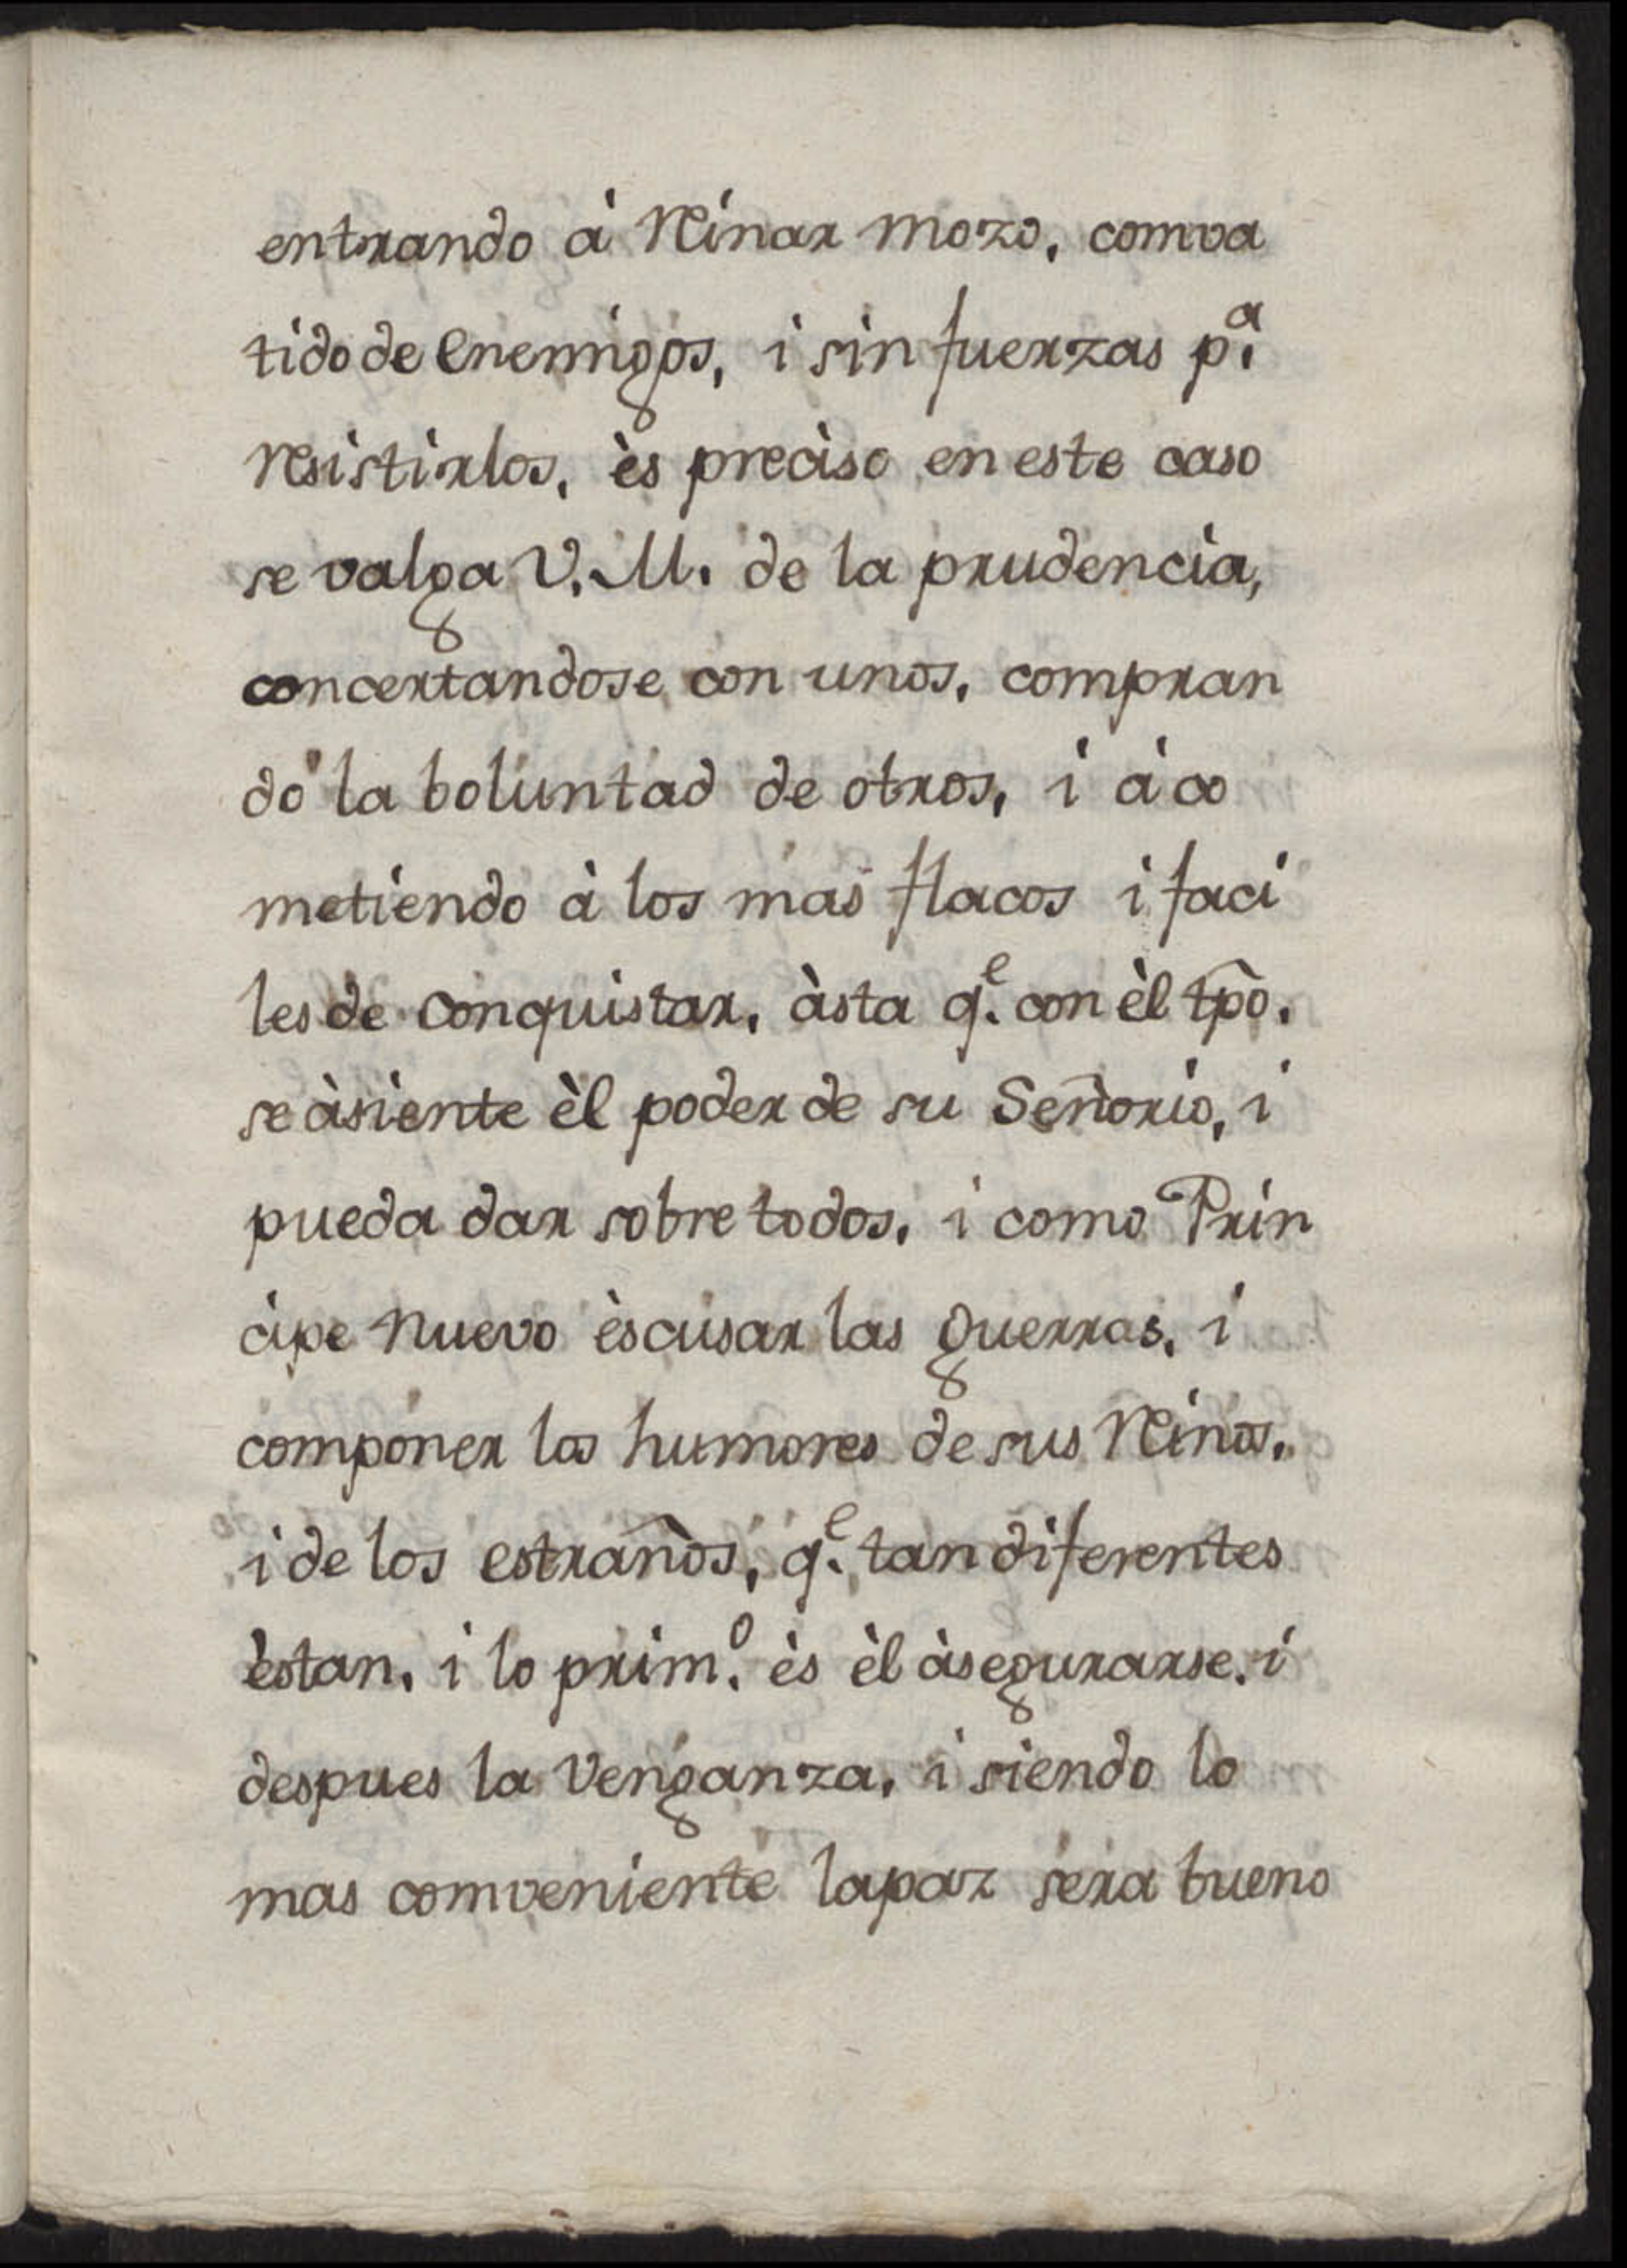 entrando à Reinar mozo, comva
tido de enemigos, i sin fuerzas p.ª
resistirlos, ès preciso en este caso
se valga V. M. de la prudencia,
concertandose con unos, compran
do la boluntad de otros, i à co
metiendo à los mas flacos i faci
les de conquistar, àsta q.ᵉ con èl tp̃o.
se àsiente èl poder de su Señorio, i
pueda dar sobre todos, i como Prin
cipe nuevo èscusar las guerras, i
componer los humores de sus Reinos,
i de los estraños, q.ᵉ tan diferentes
èstan, i lo prim.º ès èl àsegurarse, i
despues la Venganza, i siendo lo
mas comveniente la paz sera bueno